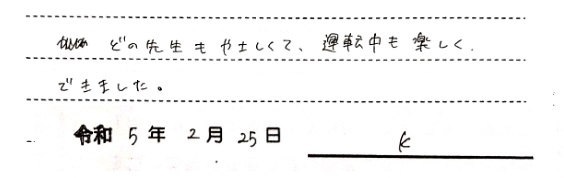 どの先生もやさしくて、運転中も楽しく
できました。
令和 5年 2月 25日 K